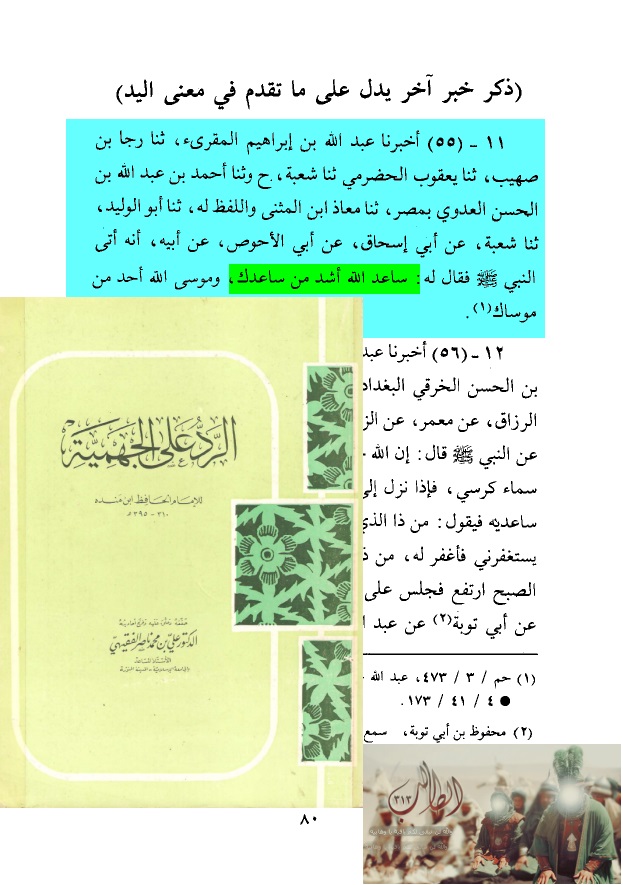 (ذكر خبر آخر يدل على ما تقدم في معنى اليد)
١١ - (٥٥) أخبرنا عبد الله بن إبراهيم المقرىء، ثنا رجا بن
صهيب، ثنا يعقوب الحضرمي ثنا شعبة، ح وثنا أحمد بن عبد الله بن
الحسن العدوي بمصر، ثنا معاذ ابن المثنى واللفظ له، ثنا أبو الوليد،
ثنا شعبة، عن أبي إسحاق، عن أبي الأحوص، عن أبيه، أنه أتى
النبي ﷺ فقال له: ساعد الله أشد من ساعدك، وموسى الله أحد من
موساك(١).
١٢ - (٥٦) أخبرنا عبد
بن الحسن الخرقي البغداد
الرزاق، عن معمر، عن الز
عن النبي ﷺ قال: إن الله
سماء كرسي، فإذا نزل إلى
ساعديه فيقول: من ذا الذي
يستغفرني فأغفر له، من ذ
الصبح ارتفع فجلس على
عن أبي توبة(٢) عن عبد ا
(١) حم / ٣ / ٤٧٣، عبد الله
● ٤ / ٤١ / ١٧٣.
(٢) محفوظ بن أبي توبة، سمع
٨٠
الرد على الجهمية
للإمام الحافظ ابن منده
٣١٠ - ٣٩٥ هـ
الدكتور علي بن محمد ناصر الفقيهي
الأستاذ المساعد
الطالب
٣١٣